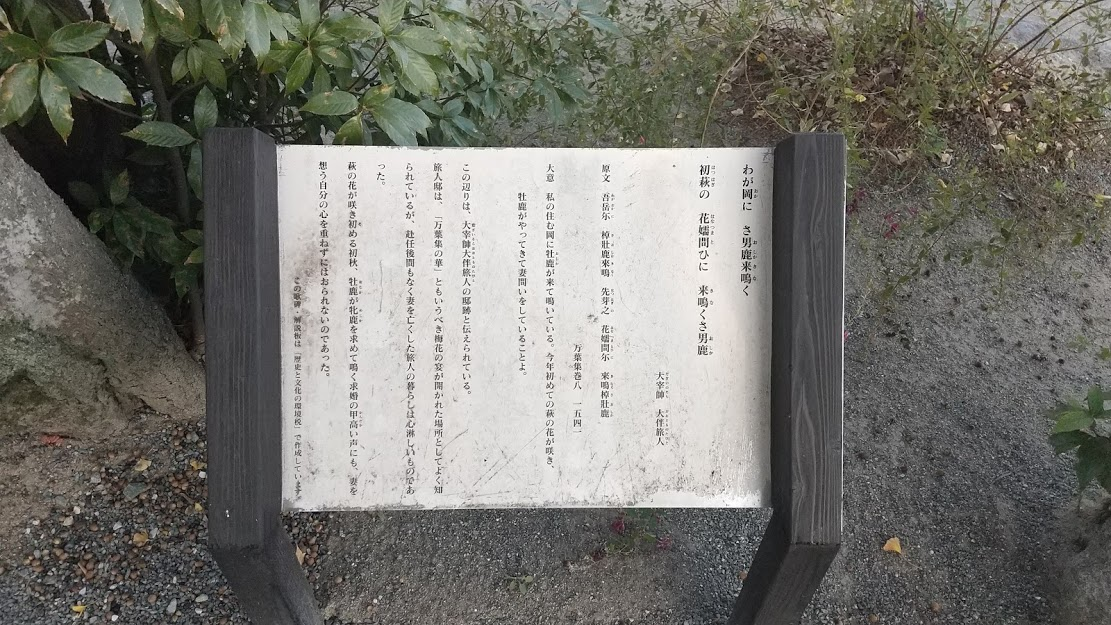 わが岡に　さ男鹿来鳴く
初萩の　花嬬問ひに　来鳴くさ男鹿
大宰帥　大伴旅人
原文　吾岳尓　棹壯鹿来鳴　先芽之　花嬬問尓　来鳴棹壯鹿
万葉集巻八　一五四一
大意　私の住む岡に牡鹿が来て鳴いている。今年初めての萩の花が咲き、
牡鹿がやってきて妻問いをしていることよ。
この辺りは、大宰帥大伴旅人の邸跡と伝えられている。
旅人邸は、「万葉集の華」ともいうべき梅花の宴が開かれた場所としてよく知
られているが、赴任後間もなく妻を亡くした旅人の暮らしは心淋しいものであ
った。
萩の花が咲き初める初秋、牡鹿が牝鹿を求めて鳴く求婚の甲高い声にも、妻を
想う自分の心を重ねずにはおられないのであった。
この歌碑・解説板は「歴史と文化の環境税」で作成しています。